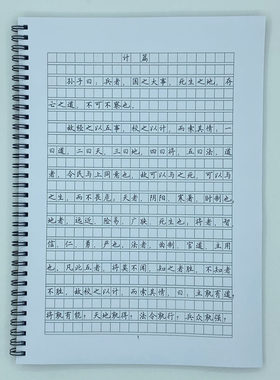 计 篇
孙子曰：兵者，国之大事，死生之地，存
亡之道，不可不察也。
故经之以五事，校之以计，而索其情：一
曰道，二曰天，三曰地，四曰将，五曰法。道
者，令民与上同意也，故可以与之死，可以与
之生，而不畏危。天者，阴阳、寒暑、时制也。
地者，远近、险易、广狭、死生也。将者，智、
信、仁、勇、严也。法者，曲制、官道、主用
也。凡此五者，将莫不闻，知之者胜，不知者
不胜。故校之以计，而索其情，曰：主孰有道？
将孰有能？天地孰得？法令孰行？兵众孰强？
1